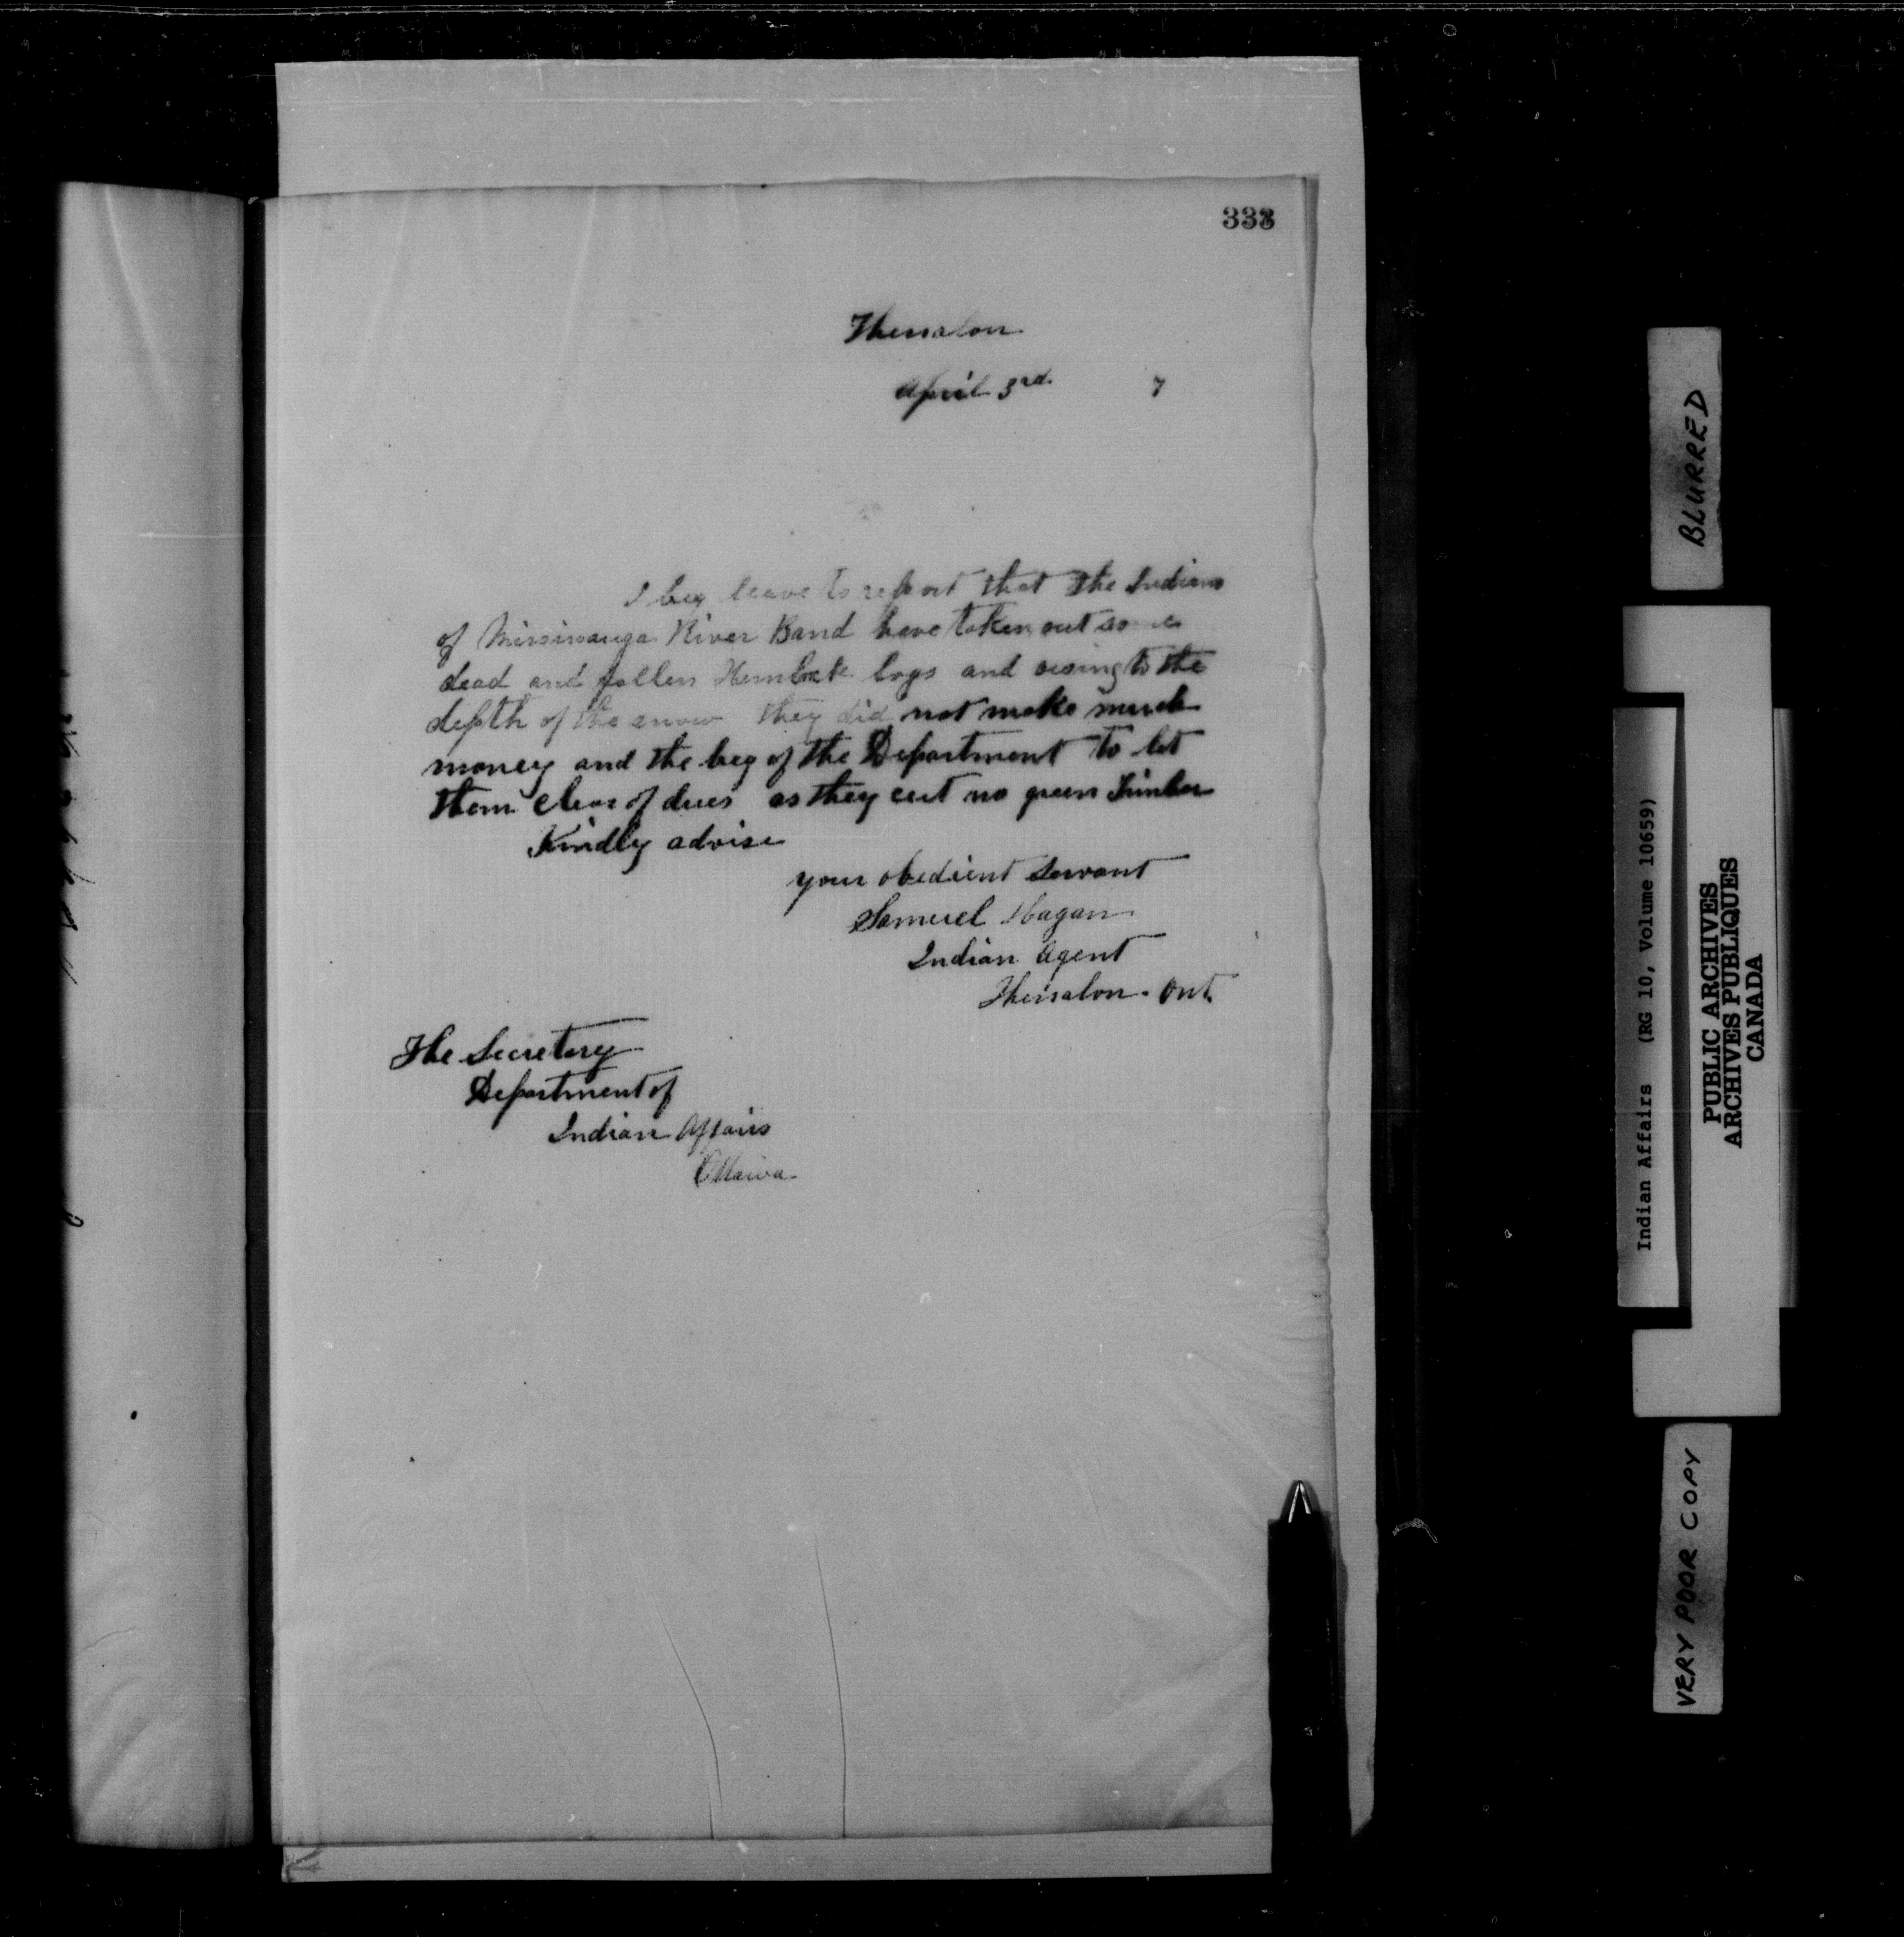 338
Thessalon
April 3rd. 7
I beg leave to report that the Indians
of Mississauga River Band have taken out some
dead and fallen Hemlock logs and owing to the
depth of the snow they did not make much
money and the beg of the Department to let
them clear of dues as they cut no green Timber
Kindly advise
your obedient Servant
Samuel Hagan
Indian Agent
Thessalon. Ont.
The Secretary
Department of
Indian Affairs
Ottawa
BLURRED
Indian Affairs (RG 10, Volume 10659)
PUBLIC ARCHIVES
ARCHIVES PUBLIQUES
CANADA
VERY POOR COPY